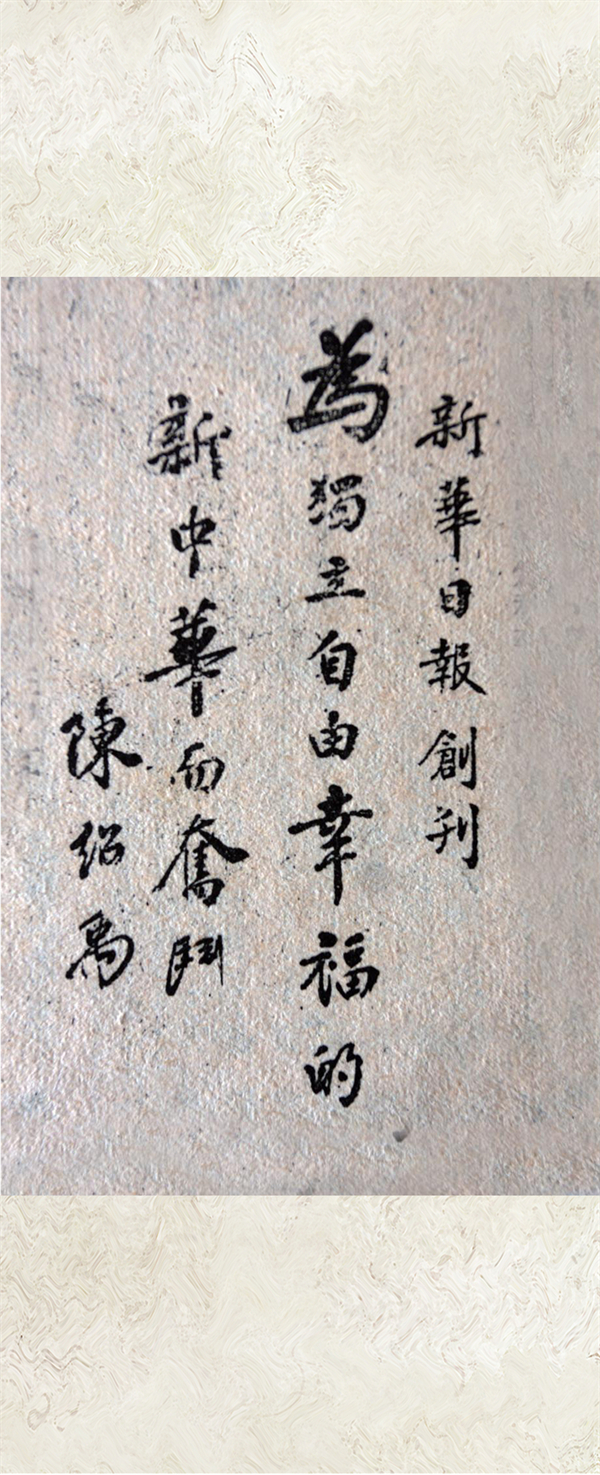 新華日報創刋
為獨立自由幸福的
新中華而奮鬥
陳紹禹